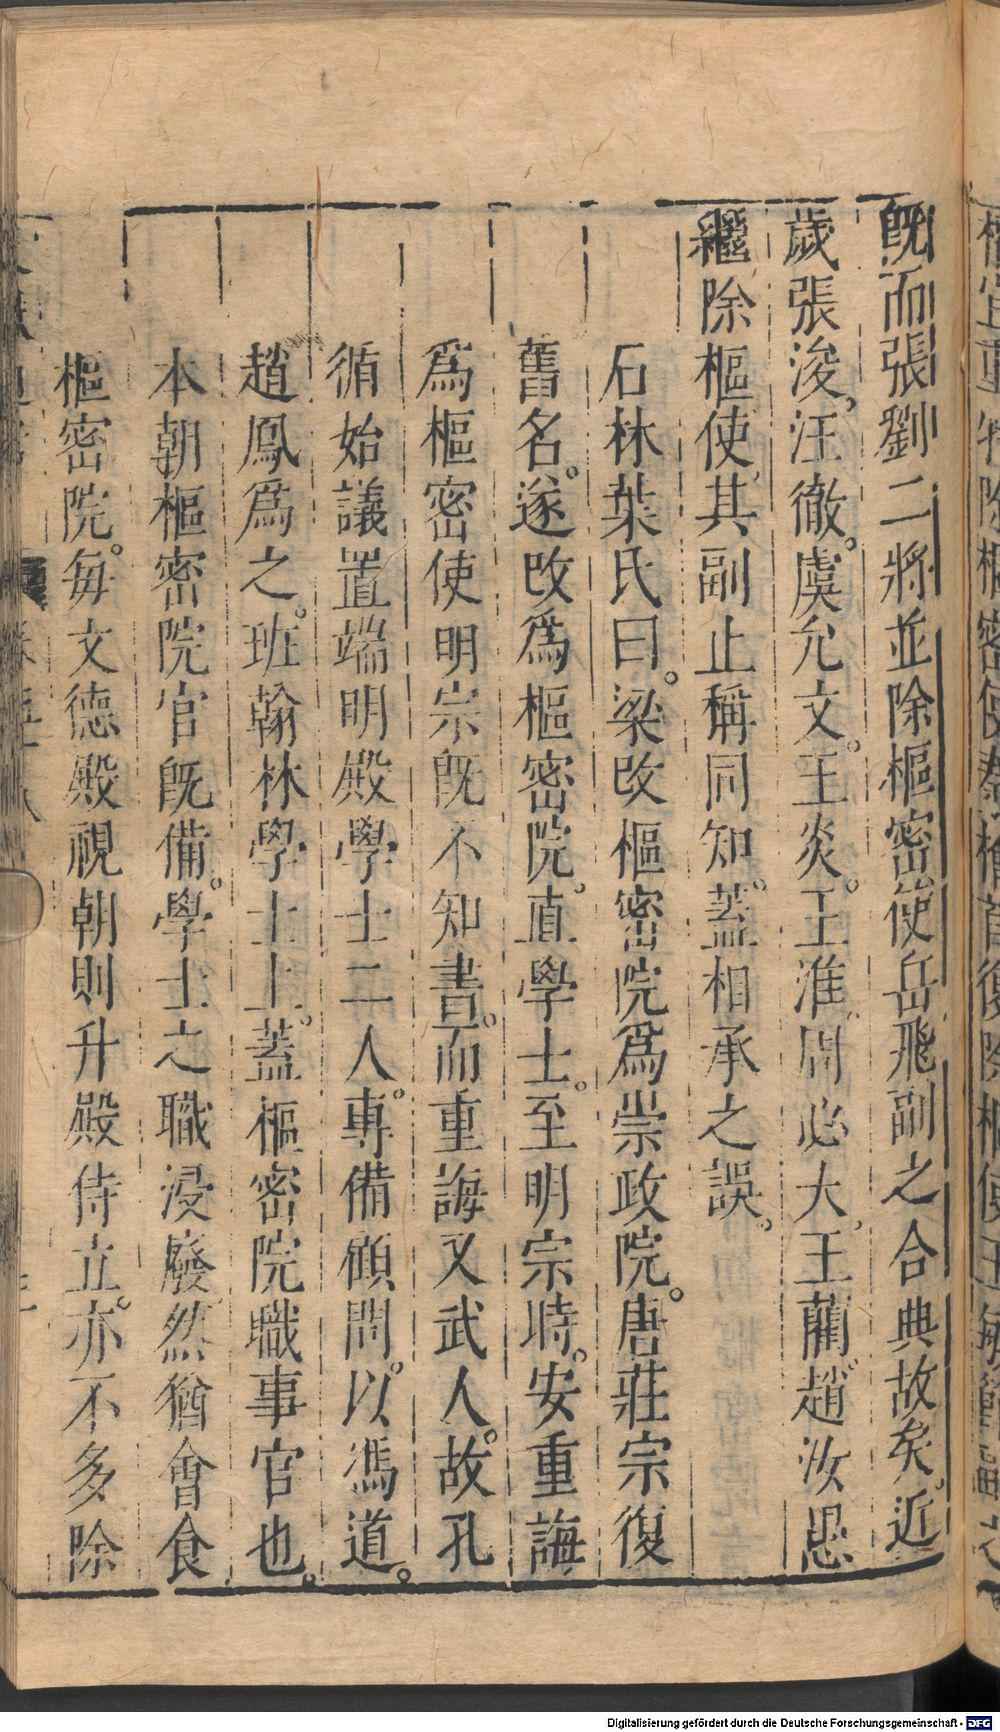 旣而張劉二將並除樞密使岳飛副之合典故矣近
歲張浚汪徹虞允文王炎王淮周必大王藺趙汝愚
繼除樞使其副止稱同知蓋相承之誤
石林葉氏曰梁改樞密院爲崇政院唐莊宗復
舊名遂改爲樞密院直學士至明宗時安重誨
爲樞密使明宗旣不知書而重誨又武人故孔
循始議置端明殿學士二人專備顧問以馮道
趙鳳爲之班翰林學士上蓋樞密院職事官也
本朝樞密院官旣備學士之職浸廢然猶會食
樞密院每文德殿視朝則升殿侍立亦不多除
Digitalisierung gefördert durch die Deutsche Forschungsgemeinschaft - DFG